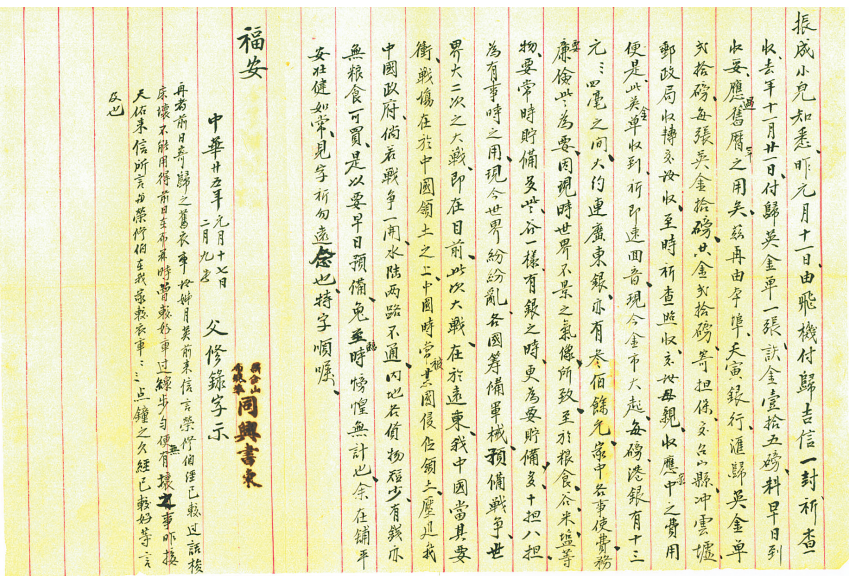 振成小兒知悉昨元月十一日由飛機付歸吉信一封祈查
收去年十一月廿一日付歸英金单一張訣金壹拾五磅料早日到
收妥應過舊曆年之用矣茲再由本埠天寅銀行滙歸英金单
弍拾磅每張英金拾磅共金弍拾磅寄担保交台山縣冲雲墟
郵政局收轉交汝收至時祈查照收交汝母親收應家中之費用
便是此英金单收到祈即速回音現今金市大起每磅港銀有十三
元三四毫之間大約連廣東銀亦有叁佰餘元家中各事使費務
要廉儉些為要因現時世界不景之氣像所致至於粮食谷米塩等
物要常時貯備多些谷一樣有銀之時更為要貯備多十担八担
為有事時之用現今世界紛紛亂各國筹備軍械預備戰争世
界大二次之大戰即在目前此次大戰在於遠東我中國當其要
衝戰塲在於中國領土之上中國時常被 國侵佔領土壓迫我
中國政府倘若戰争一開水陆兩路不通内地各貨物短少有錢亦
無粮食可買是以要早日預備免至臨時徬惶無計也余在鋪平
安壯健如常見字祈勿遠念也持字順囑
福安
中華廿五年元月十七日
二月九号
父修錄字示
新金山
布嵵車
同興書柬
再者前日寄歸之舊衣車 英前来信言榮修伯経已較过話梭
床壞不能用得前日在布 時曾較好車过線步勻便無有壞事昨接
天佑来信所言母榮修伯在我家較衣車二三点鐘之久経已較好等言
及也